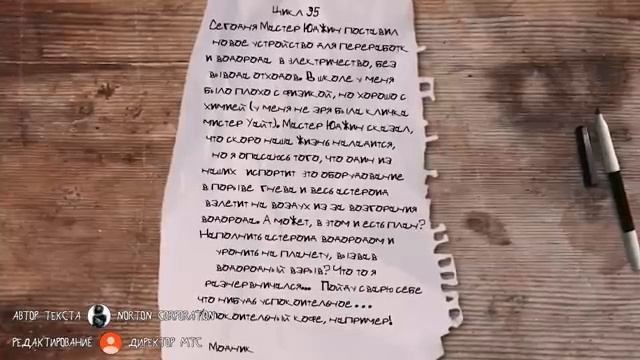 Цикл 35
Сегодня Мастер Юджин поставил
новое устройство для переработк
и водорода в электричество, без
вывода отходов. В школе у меня
было плохо с физикой, но хорошо с
химией (у меня не зря была кличка
мистер Уайт). Мастер Юджин сказал,
что скоро наша жизнь наладится,
но я опасаюсь того, что один из
наших испортит это оборудование
в порыве гнева и весь астероид
взлетит на воздух из за возгорания
водорода. А может, в этом и есть план?
Наполнить астероид водородом и
уронить на планету, вызвав
водородный взрыв? Что то я
разнервничался... Пойду сварю себе
что нибудь успокоительное...
успокоительный кофе, например!
Модник
АВТОР ТЕКСТА NORTON CORPORATION
РЕДАКТИРОВАНИЕ ДИРЕКТОР МТС